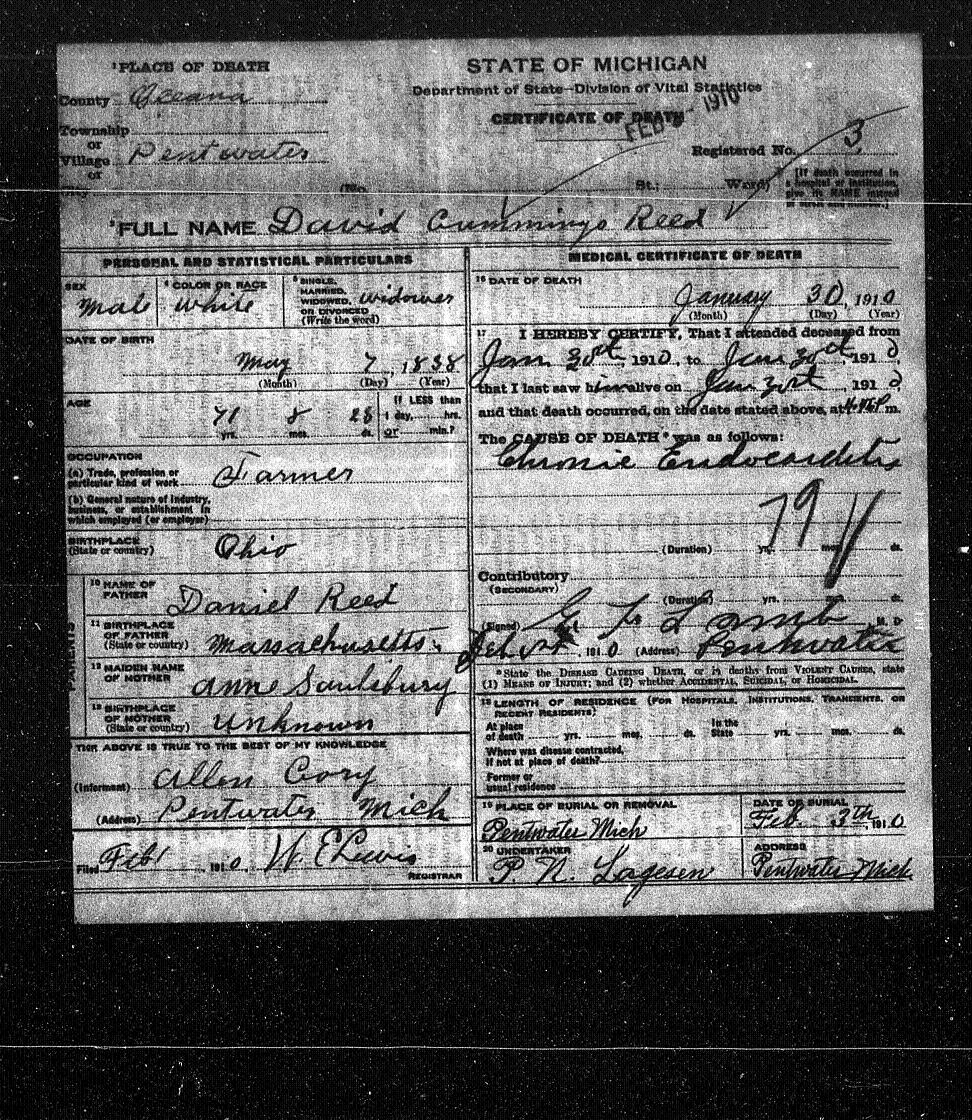 ¹PLACE OF DEATH
County Oceana
Township
or
Village Pentwater
or
STATE OF MICHIGAN
Department of State—Division of Vital Statistics
CERTIFICATE OF DEATH
FEB 1910
Registered No. 3
(No. St.; Ward)
[If death occurred in
a hospital or institution,
give its NAME instead
²FULL NAME David Cummings Reed
PERSONAL AND STATISTICAL PARTICULARS
SEX
Male
⁴ COLOR OR RACE
white
⁵ SINGLE,
MARRIED,
WIDOWED,
OR DIVORCED
(Write the word)
widower
DATE OF BIRTH
May 7, 1838
(Month) (Day) (Year)
AGE
71 8 28
yrs. mos. ds.
If LESS than
1 day, hrs.
or min.?
OCCUPATION
(a) Trade, profession or
particular kind of work Farmer
(b) General nature of industry,
business, or establishment in
which employed (or employer)
BIRTHPLACE
(State or country) Ohio
PARENTS
¹⁰ NAME OF
FATHER Daniel Reed
¹¹ BIRTHPLACE
OF FATHER
(State or country) Massachusetts
¹² MAIDEN NAME
OF MOTHER anne Saulsbury
¹³ BIRTHPLACE
OF MOTHER
(State or country) unknown
THE ABOVE IS TRUE TO THE BEST OF MY KNOWLEDGE
(Informant) Allen Cory
(Address) Pentwater Mich
Filed Feb 1, 1910 W. E. Lewis
REGISTRAR
MEDICAL CERTIFICATE OF DEATH
¹⁶ DATE OF DEATH
January 30, 1910
(Month) (Day) (Year)
¹⁷ I HEREBY CERTIFY, That I attended deceased from
Jan 30, 1910, to Jan 30, 1910,
that I last saw him alive on Jan, 1910,
and that death occurred, on the date stated above, at m.
The CAUSE OF DEATH* was as follows:
Chronic Endocarditis
79
(Duration) yrs. mos. ds.
Contributory
(SECONDARY)
(Duration) yrs. mos. ds.
(Signed) Lamb M. D.
Feb, 1910 (Address) Pentwater
*State the DISEASE CAUSING DEATH, or in deaths from VIOLENT CAUSES, state
(1) MEANS OF INJURY; and (2) whether ACCIDENTAL, SUICIDAL, or HOMICIDAL.
¹⁸ LENGTH OF RESIDENCE (FOR HOSPITALS, INSTITUTIONS, TRANSIENTS, OR
RECENT RESIDENTS)
At place
of death yrs. mos. ds.
In the
State yrs. mos. ds.
Where was disease contracted,
if not at place of death?
Former or
usual residence
¹⁹ PLACE OF BURIAL OR REMOVAL
Pentwater Mich
DATE OF BURIAL
Feb. 3th, 1910
²⁰ UNDERTAKER
P. N. Lagesen
ADDRESS
Pentwater Mich.